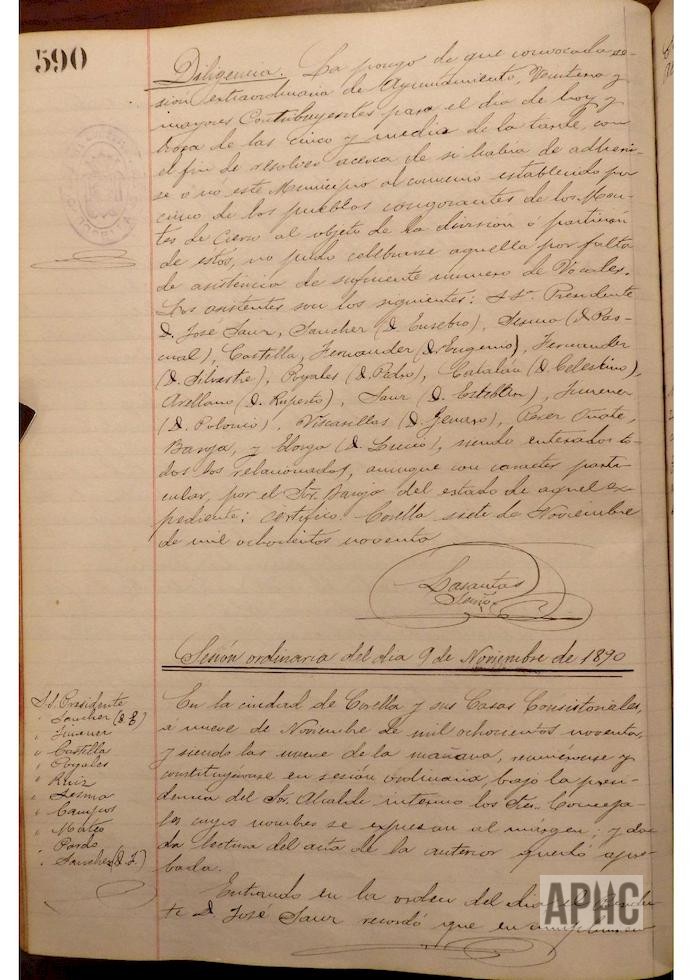 590
Diligencia. La pongo de que convocada se-
sión extraordinaria de Ayuntamiento, Veintena y
mayores Contribuyentes para el dia de hoy y
hora de las cinco y media de la tarde, con
el fin de resolver acerca de si habia de adherir-
se ó no este Municipio al convenio establecido por
cinco de los pueblos congozantes de los Mon-
tes de Cierzo al objeto de la división ó partición
de éstos, no pudo celebrarse aquella por falta
de asistencia de suficiente número de Vocales.
Los asistentes son los siguientes: Sr. Presidente
D. José Sanz, Sanchez (D. Eusebio), Sesma (D. Pas-
cual), Castilla, Fernandez (D. Eugenio), Fernandez
(D. Silvestre), Royales (D. Pedro), Catalán (D. Celestino),
Arellano (D. Ruperto), Sanz (D. Esteban), Jimenez
(D. Polonio), Virasillas (D. Genaro), Perez Oñate,
Baroja, y Elorga (D. Lucio), siendo enterados to-
dos los relacionados, aunque con caracter parti-
cular, por el Sr. Baroja del estado de aquel ex-
pediente; certifico. Corella siete de Noviembre
de mil ochocientos noventa
Lasantas
Srio.
Sesión ordinaria del dia 9 de Noviembre de 1890
S.S. Presidente
" Sanchez (D. E)
" Jimenez
" Castilla
" Royales
" Ruiz
" Sesma
" Campos
" Mateo
" Pardo
" Sanchez (D. J.)
En la ciudad de Corella y sus Casas Consistoriales,
á nueve de Noviembre de mil ochocientos noventa,
y siendo las nueve de la mañana, reuniéronse y
constituyéronse en sesión ordinaria bajo la presi-
dencia del Sr. Alcalde interino los Sres. Conceja-
les cuyos nombres se expresan al márgen; y da-
da lectura del acta de la anterior quedó apro-
bada.
Entrando en la orden del dia el Preside-
te D. José Sanz recordó que en
APHC